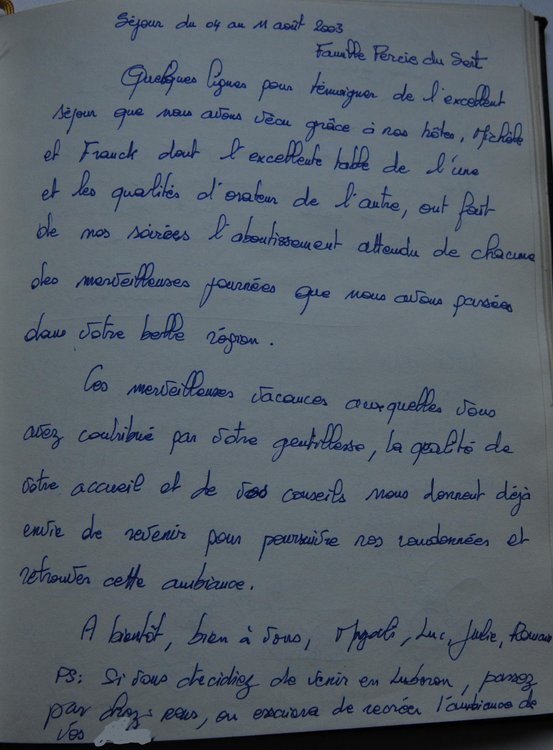 Séjour du 04 au 11 août 2003
Famille Percie du Sert
Quelques lignes pour témoigner de l'excellent
séjour que nous avons vécu grâce à nos hôtes, Michèle
et Franck dont l'excellente table de l'une
et les qualités d'orateur de l'autre, ont fait
de nos soirées l'aboutissement attendu de chacune
des merveilleuses journées que nous avons passées
dans votre belle région.
Ces merveilleuses vacances auxquelles vous
avez contribué par votre gentillesse, la qualité de
votre accueil et de vos conseils nous donnent déjà
envie de revenir pour poursuivre nos randonnées et
retrouver cette ambiance.
A bientôt, bien à vous, Magali, Luc, Julie, Romain
PS: Si vous décidiez de venir en Luberon, passez
par chez nous, on essaiera de recréer l'ambiance de
vos